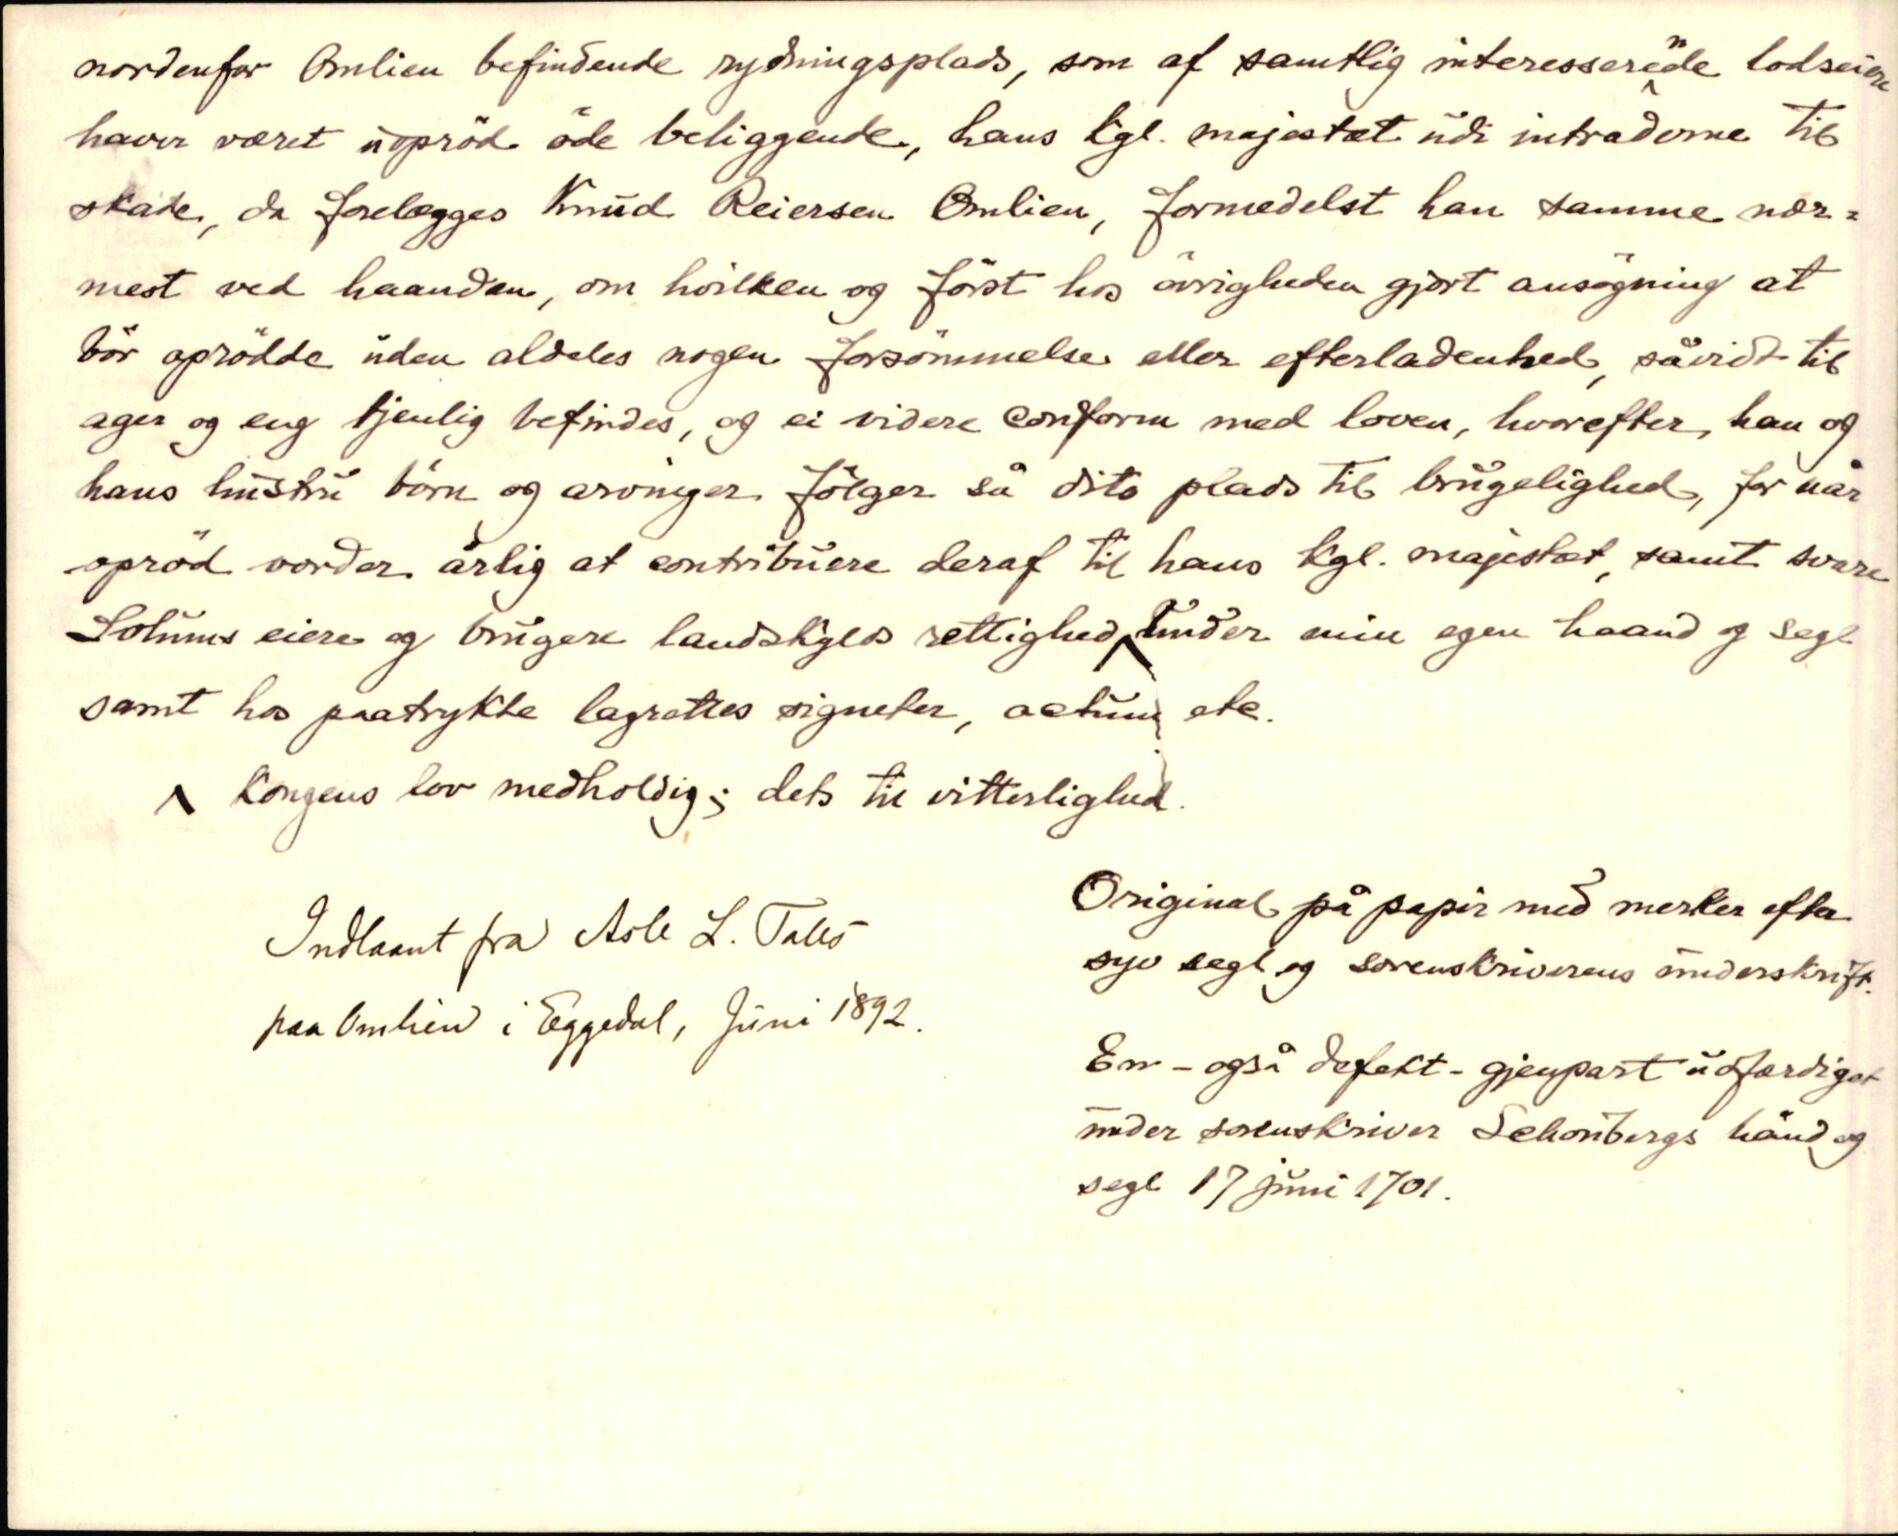 nordenfor Omlien befindende rydningsplads, som af samtlig interesserende lodseiere
haver været uoprød øde beliggende, hans kgl. majestæt udi intraderne til
skade, da forelægges Knud Reiersen Omlien, formedelst han samme nær=
mest ved haanden, om hvilken og först hos övrigheden gjort ansögning at
bör oprödde uden aldeles nogen forsömmelse eller efterladenhed, såvidt til
ager og eng tjenlig befindes, og ei videre conform med loven, hvorefter, han og
hans hustru börn og arvinger fölger så dito plads til brugelighed, for når
opröd vorder årlig at contribuere deraf til hans kgl. majestæt, samt svare
Solums eiere og brugere landskylds rettighed ^ under min egen haand og segl
samt hos paatrykte lagrettes signeter, actum etc.
^ Kongens lov medholdig; dets til vitterlighed.
Indlaant fra Asle L.
paa Omlien i Eggedal, Juni 1892.
Original på papir med merker efter
syv segl og sorenskriverens underskrift.
En - også defekt - gjenpart udfærdiget
under sorenskriver Schonbergs hånd og
segl 17 juni 1701.